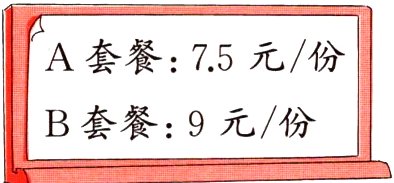 A 套餐：7.5 元/份
B 套餐：9 元/份